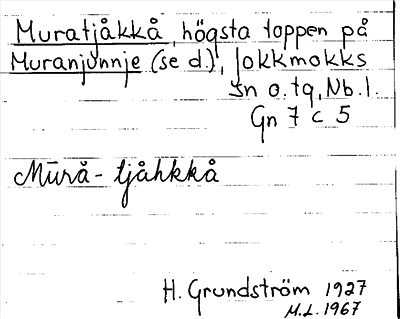 Muratjåkkå, högsta toppen på
Muranjunnje (se d.), Jokkmokks
sn o. tg, Nb. l.
Gn 7 c 5
Mūrå- tjåhkkå
H. Grundström 1927
M.L. 1967